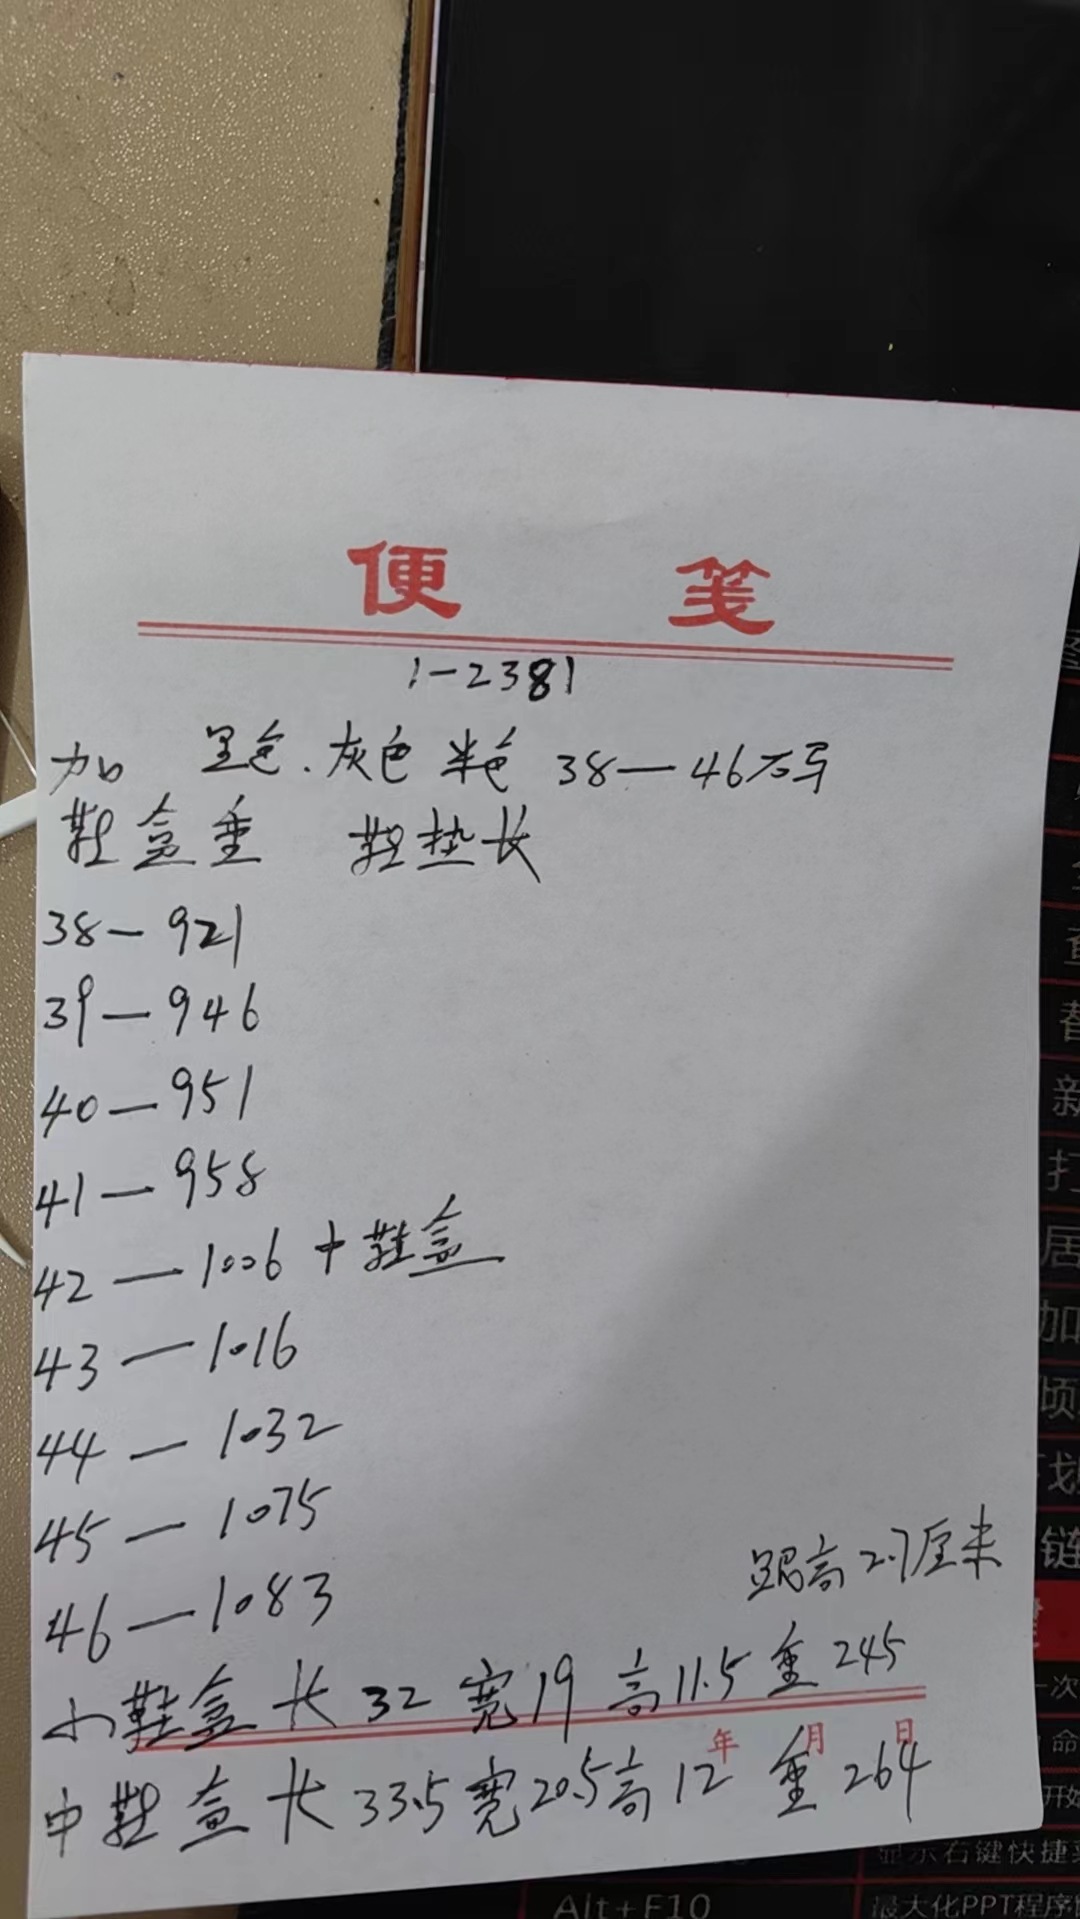 便 笺
1-2381
加 黑色.灰色 米色 38—46码
鞋盒重 鞋垫长
38—921
39—946
40—951
41—958
42—1006 中鞋盒
43—1016
44—1032
45—1075
46—1083
跟高2.7厘米
小鞋盒 长32 宽19 高11.5 重245
年 月 日
中鞋盒 长33.5 宽20.5 高12 重264
新
打
居
加
链
一次
命
开始
显示右键快捷菜
Alt+F10
最大化PPT程序